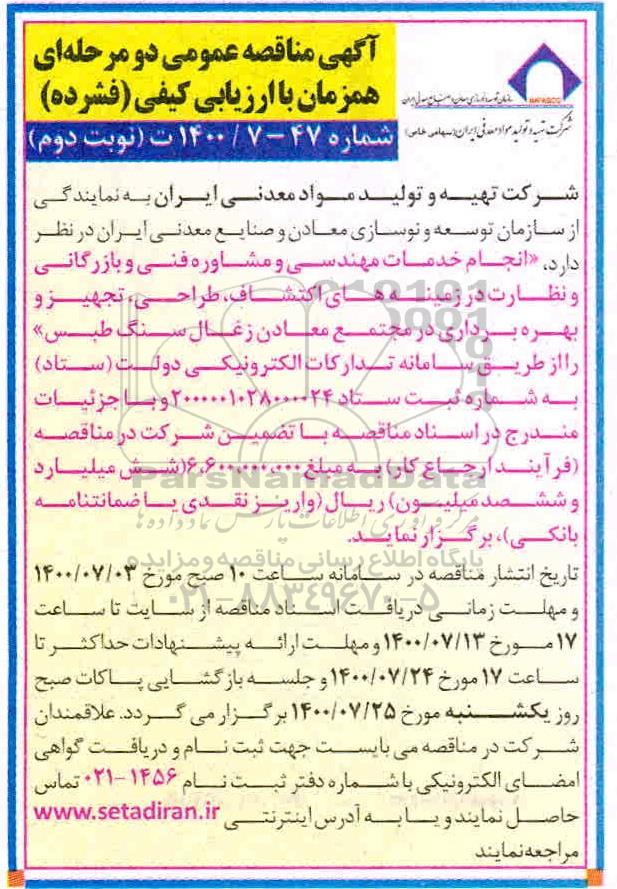 آگهی مناقصه عمومی دو مرحله‌ای
همزمان با ارزیابی کیفی (فشرده)
شماره ۴۷ – ۷ / ۱۴۰۰ ت (نوبت دوم)
شرکت تهیه و تولید مواد معدنی ایران (سهامی خاص)
شرکت تهیه و تولید مواد معدنی ایران به نمایندگی
از سازمان توسعه و نوسازی معادن و صنایع معدنی ایران در نظر
دارد، «انجام خدمات مهندسی و مشاوره فنی و بازرگانی
و نظارت در زمینه های اکتشاف، طراحی، تجهیز و
بهره برداری در مجتمع معادن زغال سنگ طبس»
را از طریق سامانه تدارکات الکترونیکی دولت (ستاد)
به شماره ثبت ستاد ۲۰۰۰۰۰۱۰۲۸۰۰۰۰۲۴ و با جزئیات
مندرج در اسناد مناقصه با تضمین شرکت در مناقصه
(فرآیند ارجاع کار) به مبلغ ۶,۶۰۰,۰۰۰,۰۰۰ (شش میلیارد
و ششصد میلیون) ریال (واریز نقدی یا ضمانتنامه
بانکی)، برگزار نماید.
تاریخ انتشار مناقصه در سامانه ساعت ۱۰ صبح مورخ ۱۴۰۰/۰۷/۰۳
و مهلت زمانی دریافت اسناد مناقصه از سایت تا ساعت
۱۷ مورخ ۱۴۰۰/۰۷/۱۳ و مهلت ارائه پیشنهادات حداکثر تا
ساعت ۱۷ مورخ ۱۴۰۰/۰۷/۲۴ و جلسه بازگشایی پاکات صبح
روز یکشنبه مورخ ۱۴۰۰/۰۷/۲۵ برگزار می گردد. علاقمندان
شرکت در مناقصه می بایست جهت ثبت نام و دریافت گواهی
امضای الکترونیکی با شماره دفتر ثبت نام ۱۴۵۶-۰۲۱ تماس
حاصل نمایند و یا به آدرس اینترنتی www.setadiran.ir
مراجعه نمایند
ParsNamadData
پایگاه اطلاع رسانی مناقصه و مزایده
۰۲۱-۸۸۳۴۹۶۷۰-۵